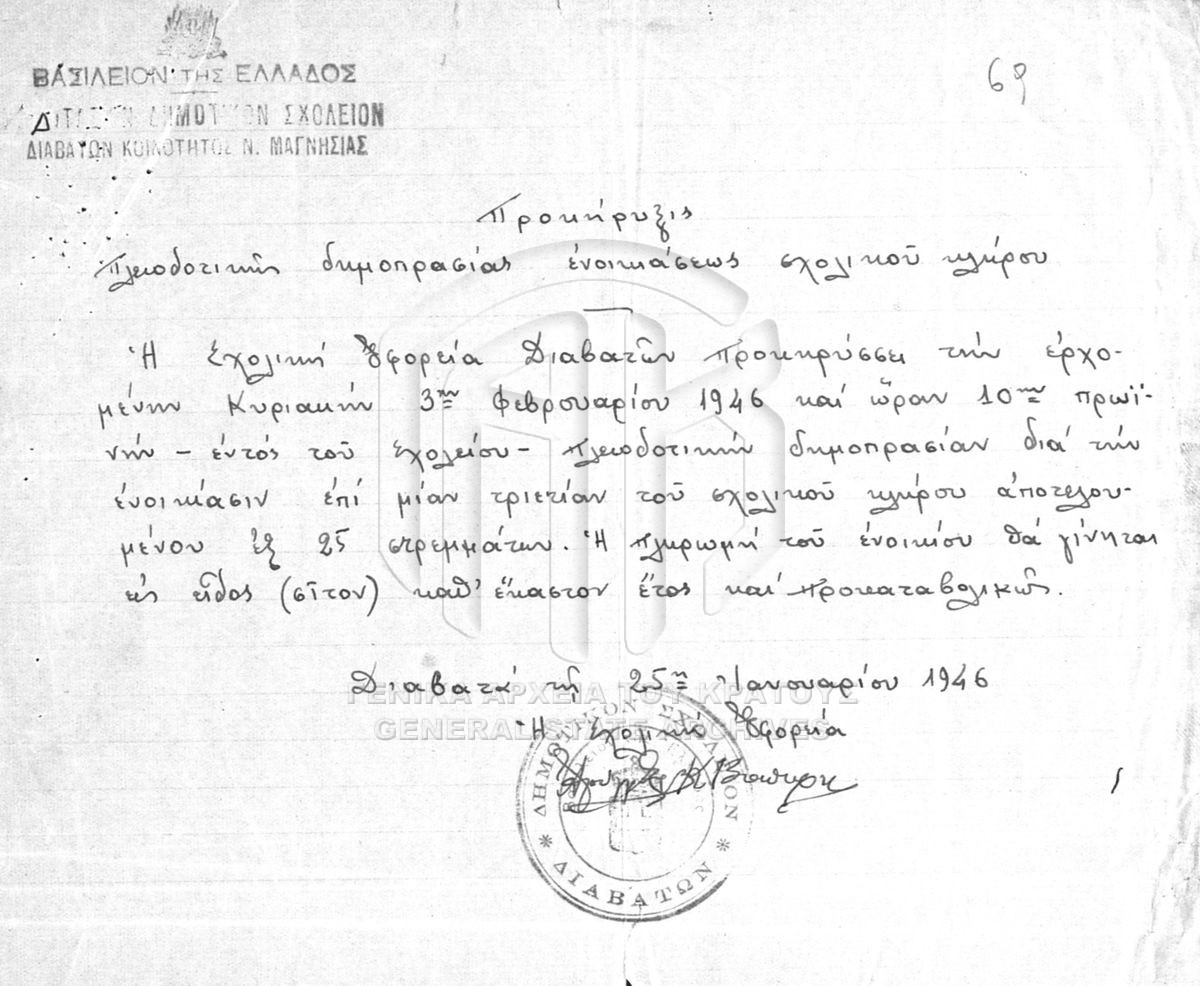 69
ΒΑΣΙΛΕΙΟΝ ΤΗΣ ΕΛΛΑΔΟΣ
ΔΙΤΑΞΙΟΝ ΔΗΜΟΤΙΚΟΝ ΣΧΟΛΕΙΟΝ
ΔΙΑΒΑΤΩΝ ΚΟΙΝΟΤΗΤΟΣ Ν. ΜΑΓΝΗΣΙΑΣ
Προκήρυξις
Πλειοδοτικῆς δημοπρασίας ἐνοικιάσεως σχολικοῦ κλήρου
Ἡ Σχολική Ἐφορεία Διαβατῶν προκηρύσσει τήν ἐρχο-
μένην Κυριακήν 3ην Φεβρουαρίου 1946 καί ὥραν 10ην πρωϊ-
νήν - ἐντός τοῦ Σχολείου - πλειοδοτικήν δημοπρασίαν διά τήν
ἐνοικίασιν ἐπί μίαν τριετίαν τοῦ σχολικοῦ κλήρου ἀποτελου-
μένου ἐξ 25 στρεμμάτων. Ἡ πληρωμή τοῦ ἐνοικίου θά γίνηται
εἰς εἶδος (σῖτον) καθ' ἕκαστον ἔτος καί προκαταβολικῶς.
Διαβατά τῇ 25ῃ Ἰανουαρίου 1946
Ἡ Σχολική Ἐφορεία
ΔΗΜΟΤΙΚΟΝ ΣΧΟΛΕΙΟΝ
ΔΙΑΒΑΤΩΝ
ΓΕΝΙΚΑ ΑΡΧΕΙΑ ΤΟΥ ΚΡΑΤΟΥΣ
GENERAL STATE ARCHIVES